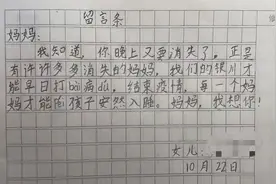 留言条
妈妈:
我知道,你晚上又要消失了。正是
有许许多多消失的妈妈,我们的银川才
能早日打bài病dú,结束疫情,每一个妈
妈才能陪孩子安然入睡。妈妈,我想你!
女儿
10月28日